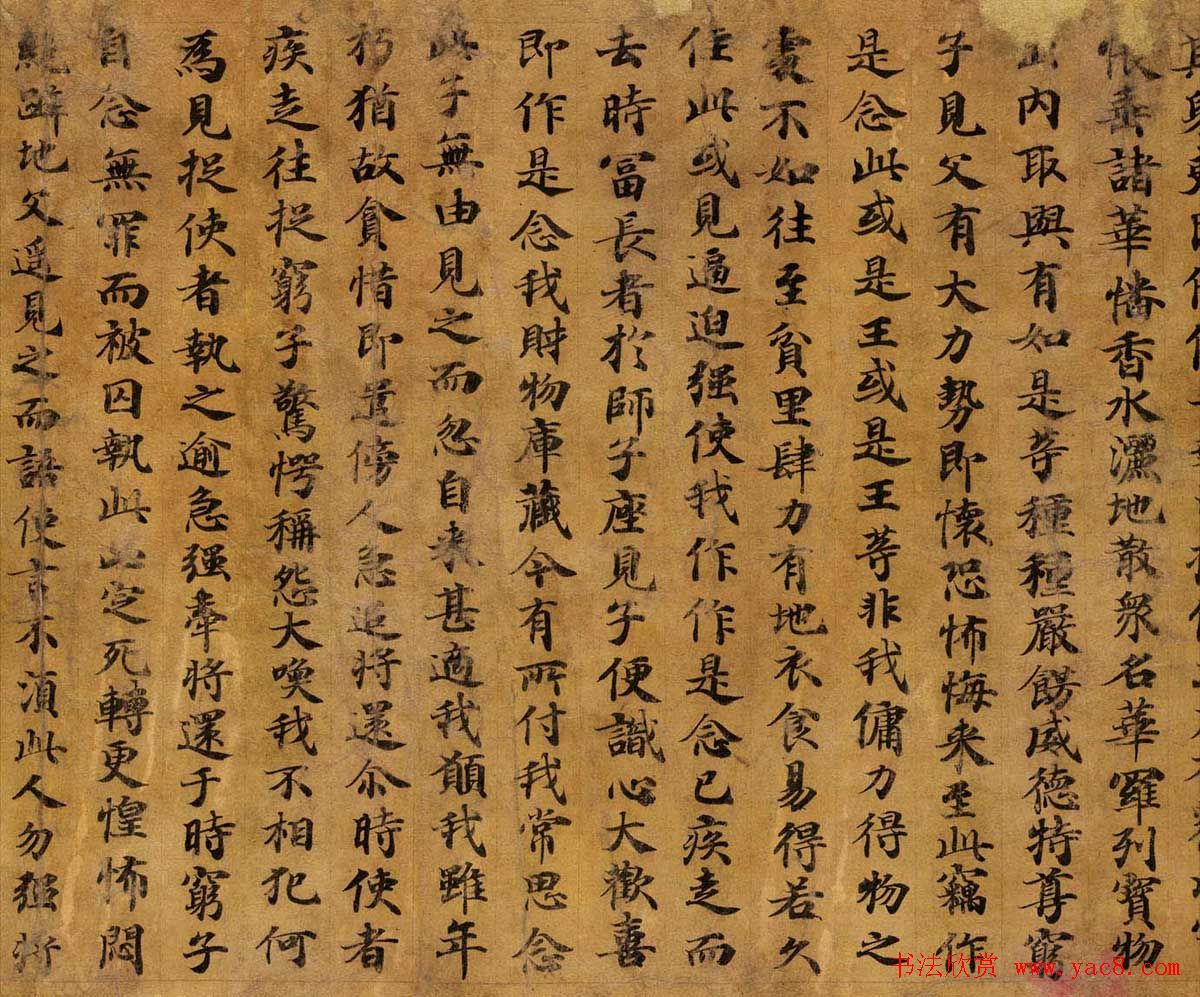 帳垂諸華幡香水灑地散衆名華羅列寶物
出内取與有如是等種種嚴餝威德特尊窮
子見父有大力勢即懷恐怖悔来至此竊作
是念此或是王或是王等非我傭力得物之
處不如往至貧里肆力有地衣食易得若久
住此或見逼迫强使我作作是念已疾走而
去時冨長者於師子座見子便識心大歡喜
即作是念我財物庫藏今有所付我常思念
此子無由見之而忽自来甚適我願我雖年
朽猶故貪惜即遣傍人急追將還尒時使者
疾走往捉窮子驚愕稱怨大喚我不相犯何
爲見捉使者執之逾急强牽將還于時窮子
自念無罪而被囚執此必定死轉更惶怖悶
絶躃地父遥見之而語使言不湏此人勿强將
书法欣赏 www.yac8.com